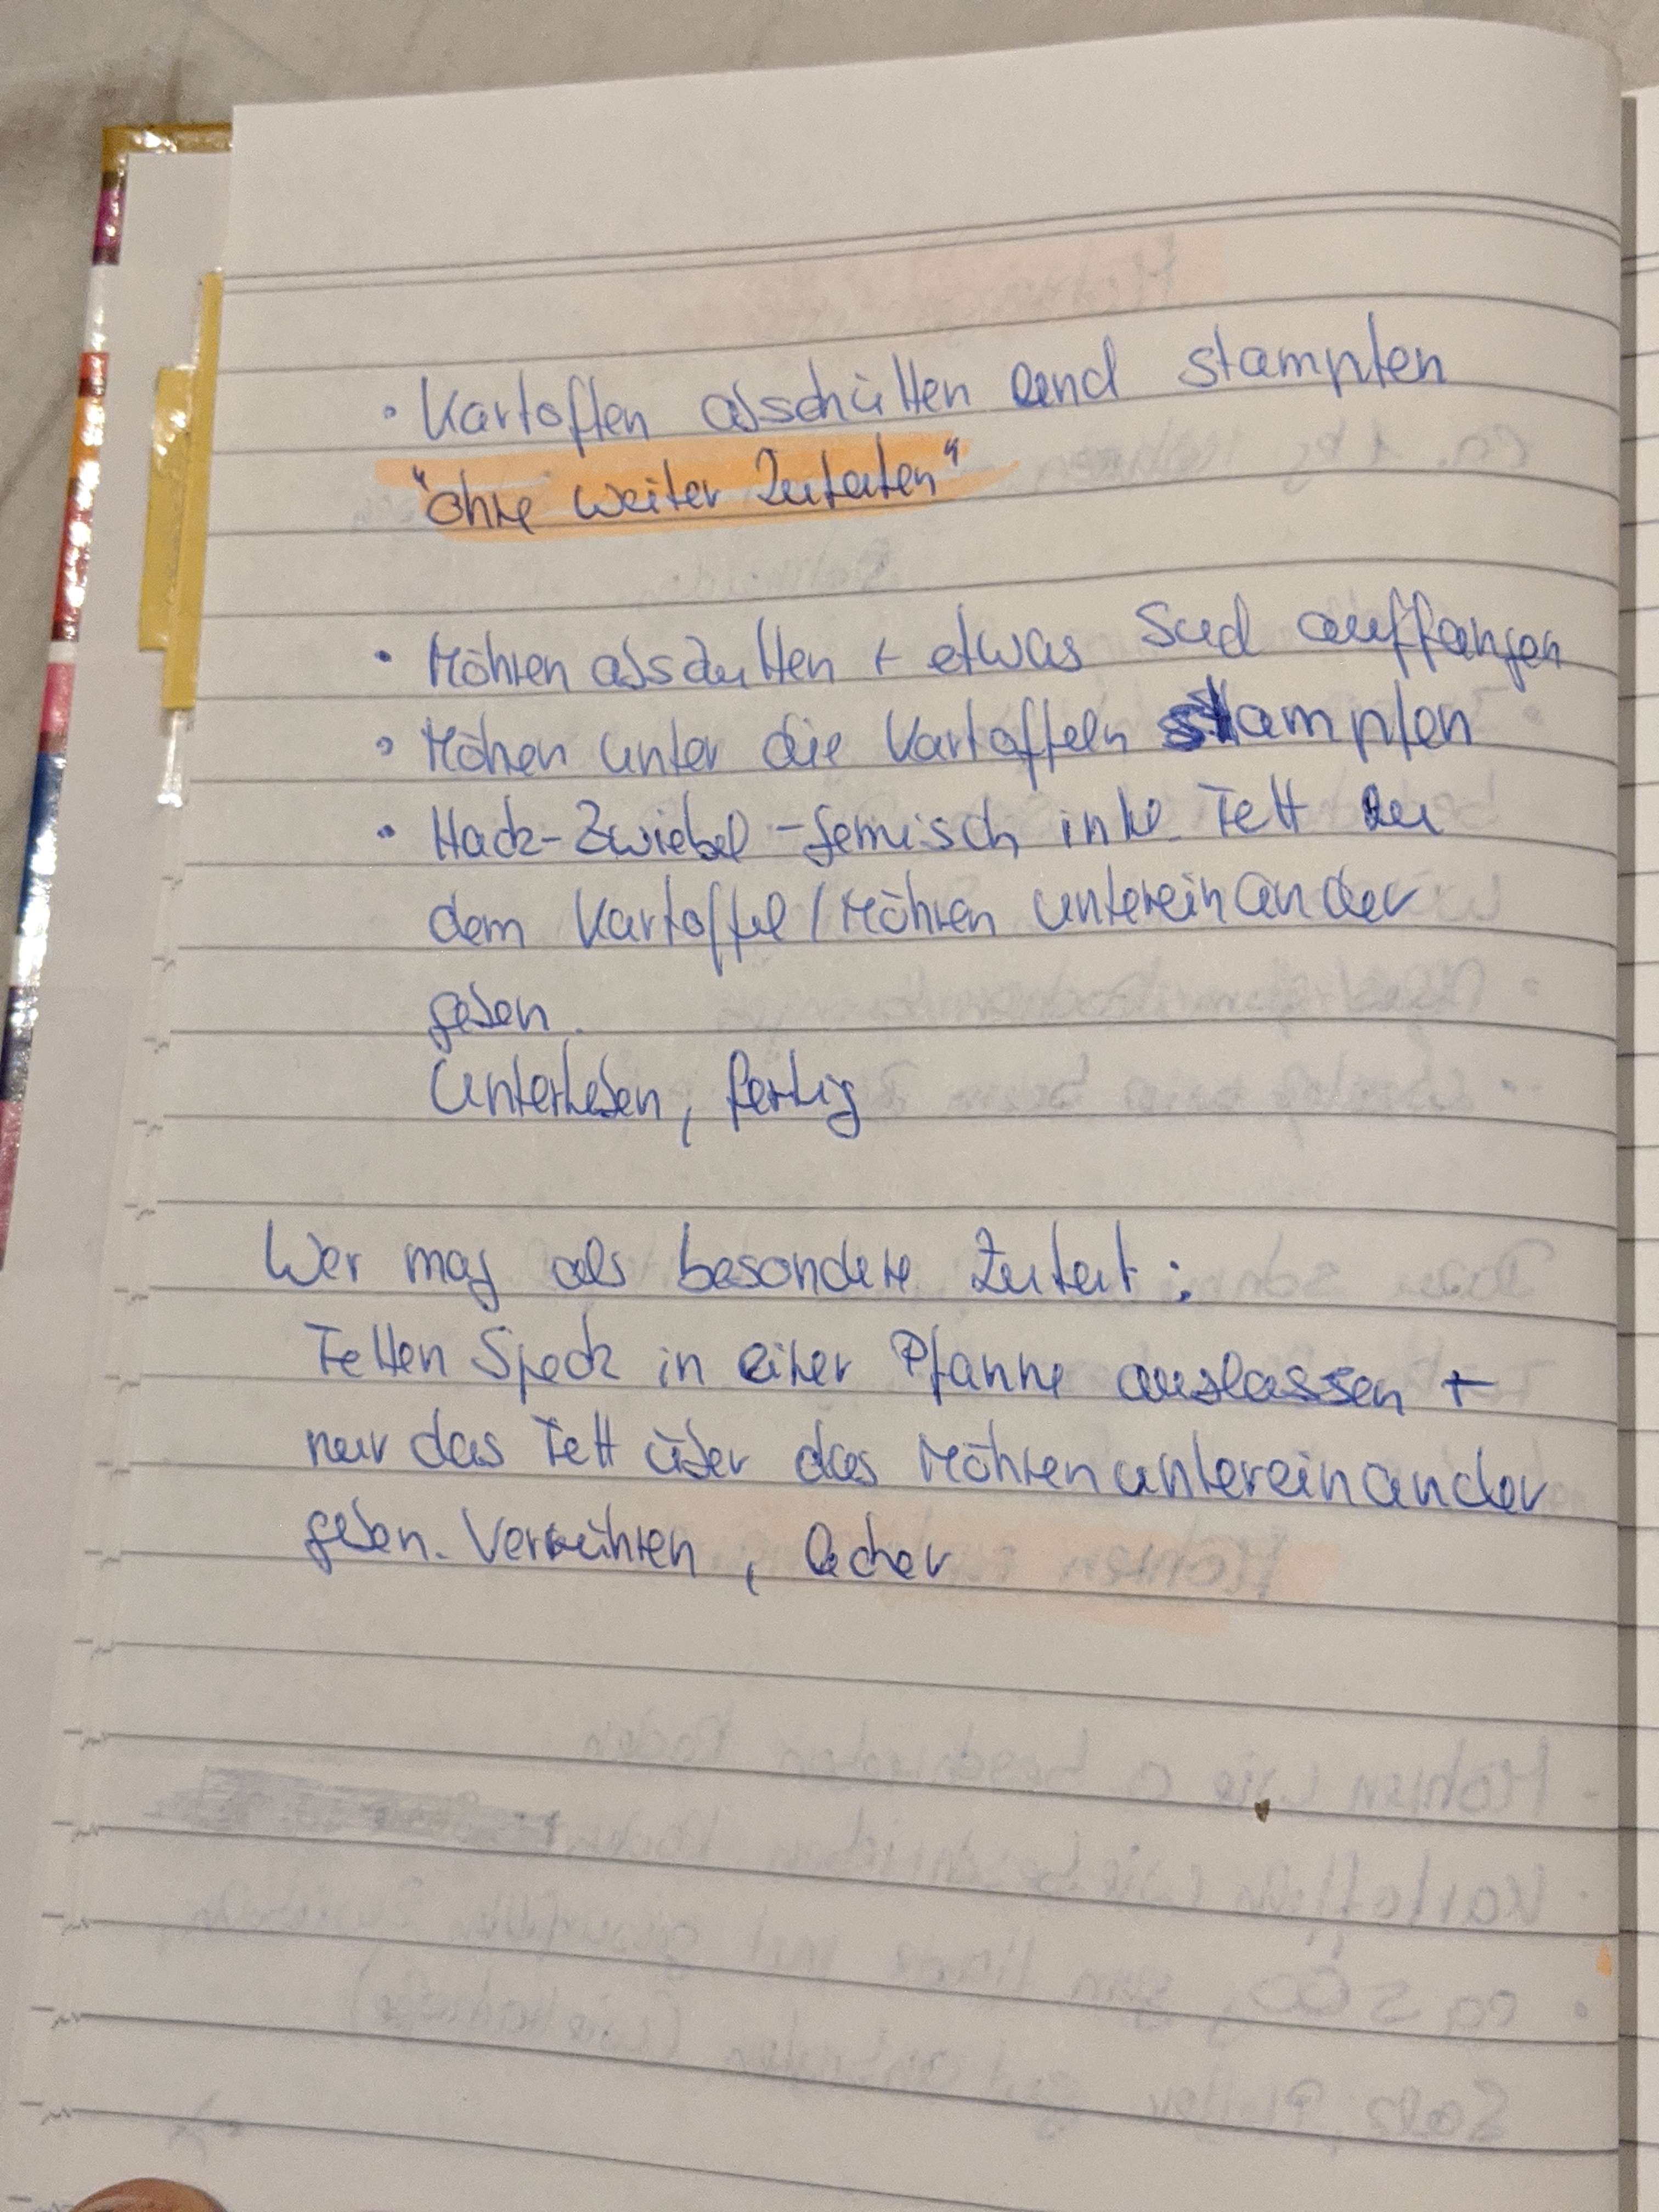 • Kartoffen abschütten und stampfen
"ohne weiter Zutaten"
• Möhren abschütten + etwas Sud auffangen
• Möhren unter die Kartoffeln stampfen
• Hack-Zwiebel-gemisch inkl. Fett zu
dem Kartoffel/Möhren untereinander
geben.
Unterheben, fertig
Wer mag als besondere Zutat:
Fetten Speck in einer Pfanne auslassen +
nur das Fett über das Möhrenuntereinander
geben. Verrühren, lecker